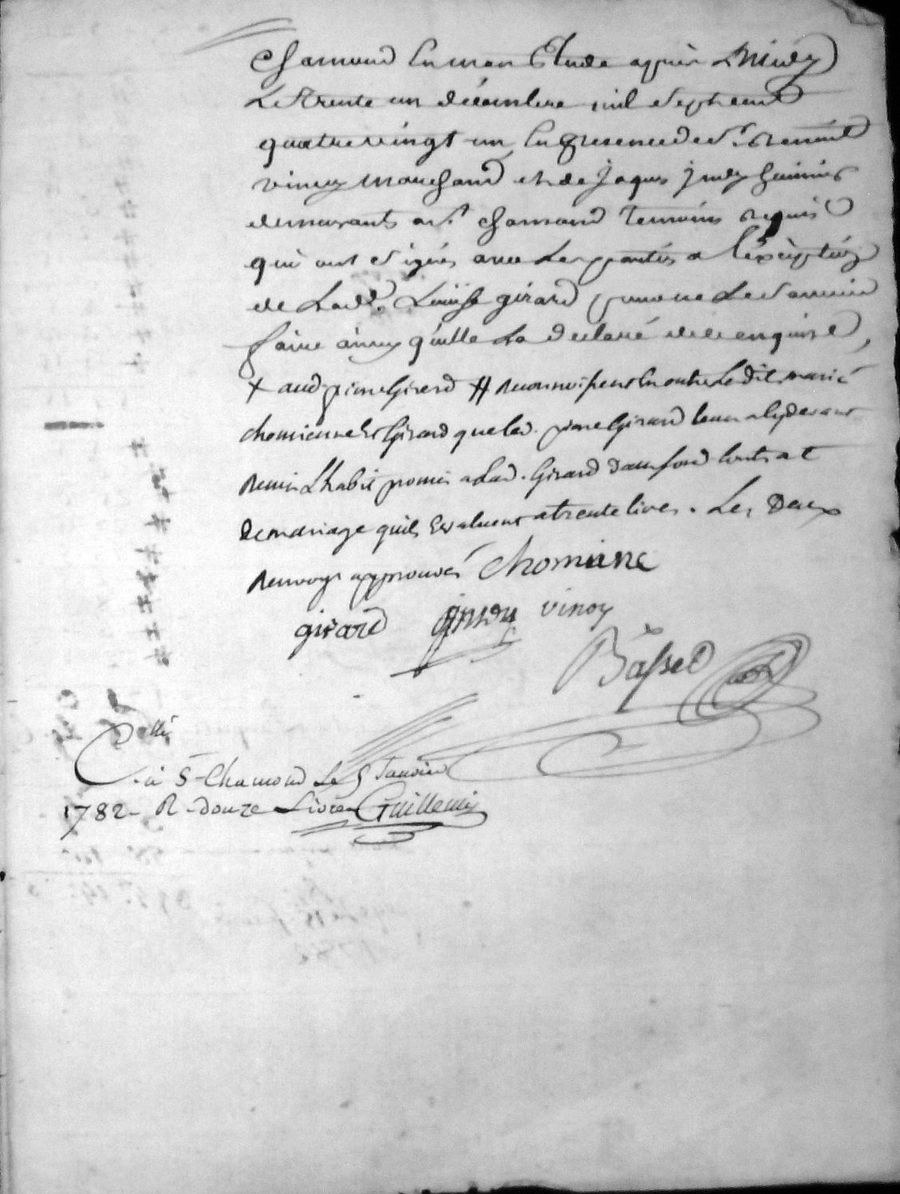 Chamond en mon Etude après Midy
Le Trente un décembre mil sept cent
quatre vingt un, En presence de sr. benoit
vinoy marchand et de Jaques
demeurants a st. chamond Temoins requis
qui ont signés avec Les parties a L'éxèption
de Lad. Louise girard pour ne Le savoir
faire ainsy qu'elle La declaré de ce enquise,
+ aud pierre Girard # reconnoissent En outre Ledit marié
chomienne Et Girard que led. pierre Girard leur a cy devant
Remis L'habit promis a Lad. Girard dans son Contrat
De mariage quils Evaluent a trente livres. Les Deux
Renvoys approuvés Chomiene
girard vinoy
Basset
Collé
à St-Chamond Le 5 Janvier
1782 - R. douze Livres Guillemin